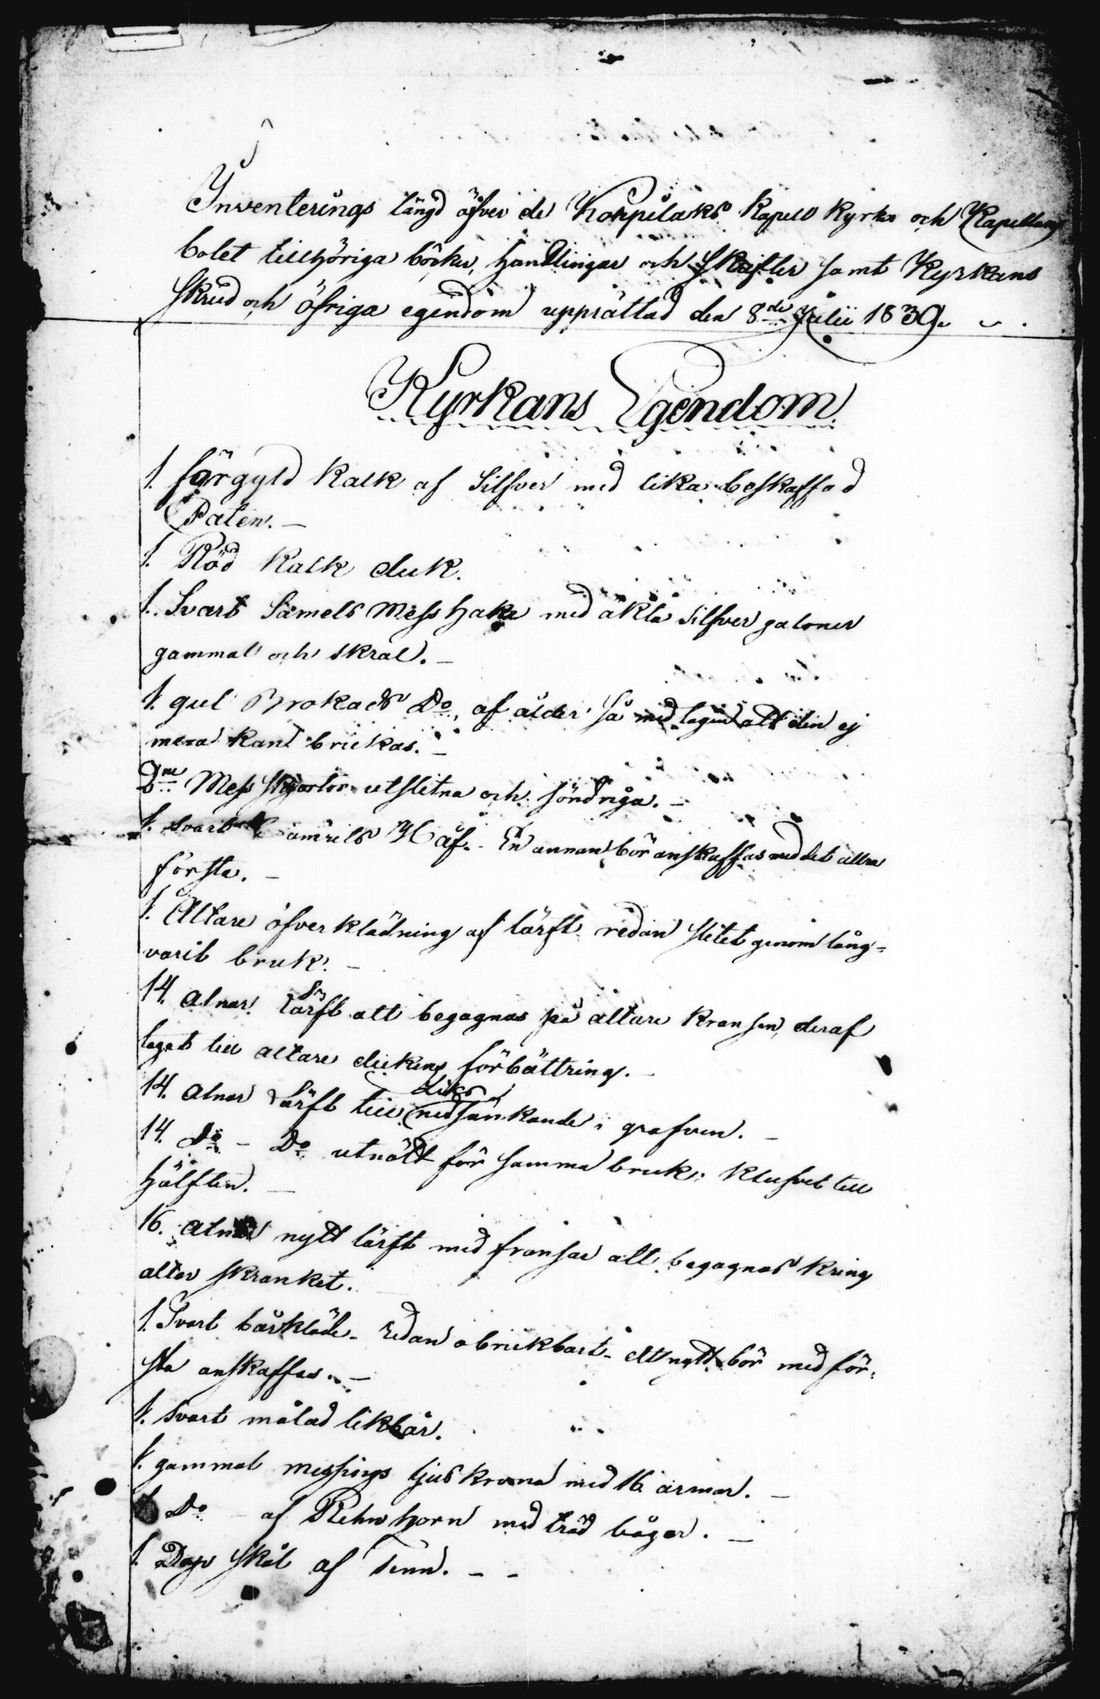 Inventerings längd öfver de Korpilaks Kapell Kyrka och Kapellans
bolet tillhöriga böcker, handlingar och skrifter samt Kyrkans
skrud och öfriga egendom upprättad den 8de Julii 1839.
Kyrkans Egendom
1. förgyld Kalk af Silfver med lika beskaffad
Paten. —
1. Röd Kalk duk.
1. Svart Samets Mess Hake med äkta silfver galoner
gammal och skral. —
1. gul Brokads Do, af ålder så medtagen att den ej
mera kant brukas. —
Dne Mess skjortor utslitna och söndriga. —
1. svart Samets Håf. En annan bör anskaffas med det allra
första. —
1. Altare öfverklädning af lärft redan slitet genom lång-
varit bruk. —
14. alnar lärft att begagnas på altare kransen, deraf
taget till altare dukens förbättring. —
14. alnar lärft till Liks nedsänkande i grafven. —
14. Do — Do utnött för samma bruk; klufvet till
hälften. —
16. alnar nytt lärft med fransar att begagnas kring
altar skranket. —
1. Svart bårkläde redan obrukbart - ett nytt bör med för-
sta anskaffas. —
1. svart målad likbår.
1. gammal messings ljuskrona med 16 armar. —
1 Do — af Rehn horn med träd bågar. —
1. Dop skål af Tenn. — -